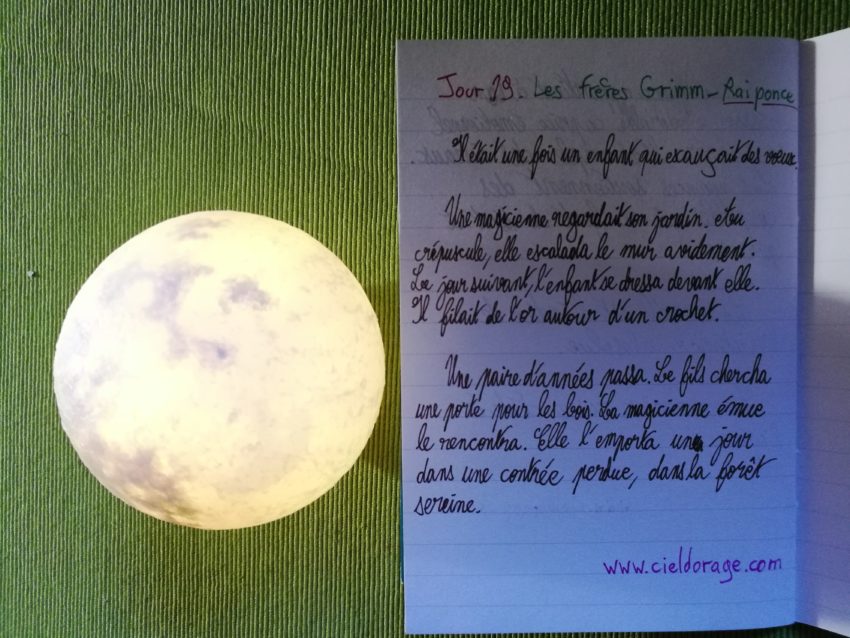 Jour 19. Les frères Grimm - Raiponce
Il était une fois un enfant qui exauçait des vœux.
Une magicienne regardait son jardin, et au
crépuscule, elle escalada le mur avidement.
Le jour suivant, l'enfant se dressa devant elle.
Il filait de l'or autour d'un crochet.
Une paire d'années passa. Le fils chercha
une porte pour les bois. La magicienne émue
le rencontra. Elle l'emporta un jour
dans une contrée perdue, dans la forêt
sereine.
www.cieldorage.com